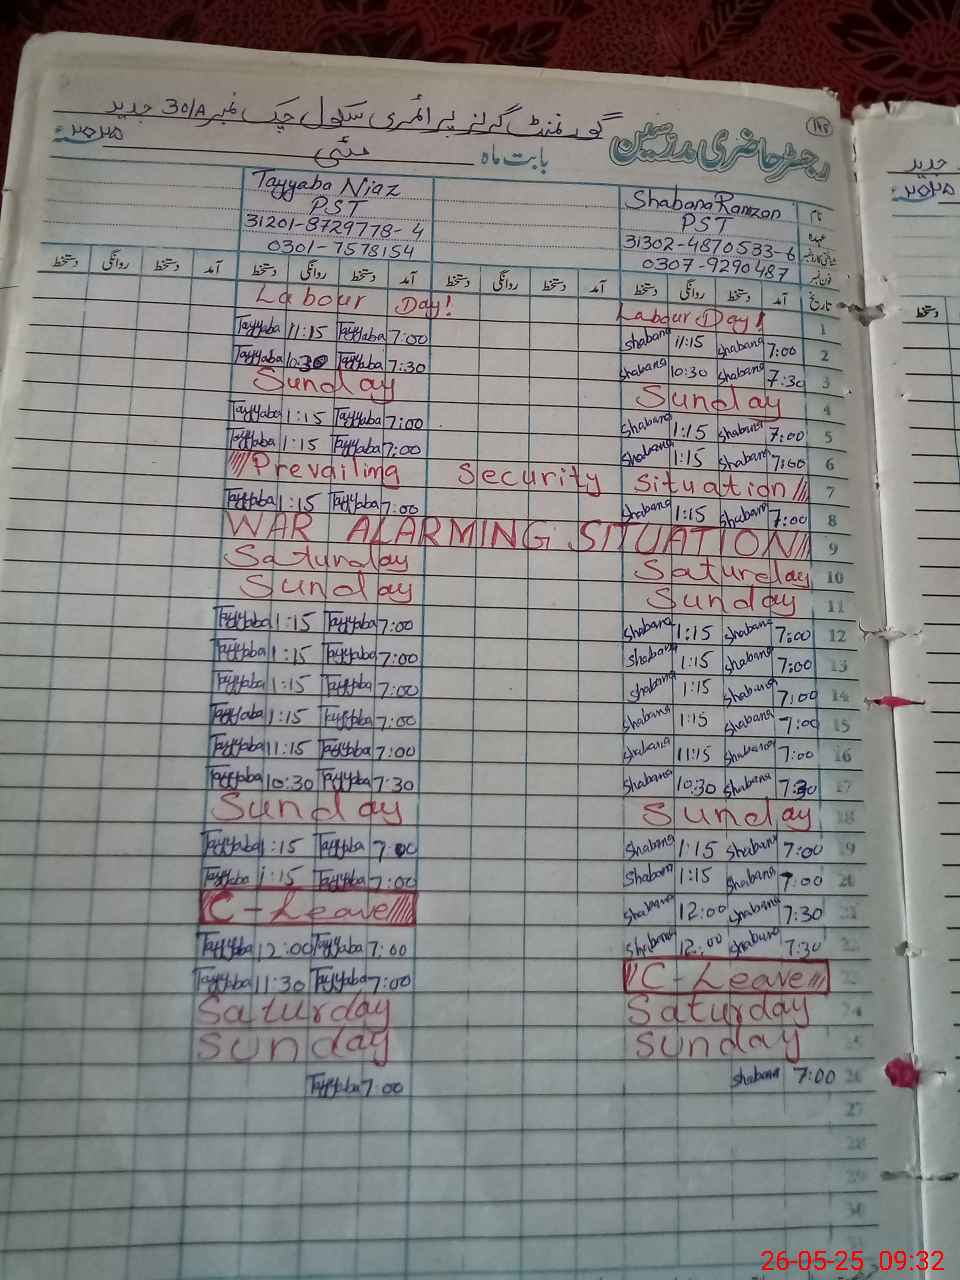 ۱۴۵
گورنمنٹ گرلز پرائمری سکول چک نمبر 30/A جدید
رجسٹر حاضری مدرسین بابت ماہ مئی ۲۰۲۵ء
نام Shabana Ramzan Tayyaba Niaz
عہدہ PST PST
31302-4870533-6 31201-8729778-4
فون نمبر 0307-9290487 0301-7578154
تاریخ آمد دستخط روانگی دستخط آمد دستخط روانگی دستخط آمد دستخط روانگی دستخط آمد دستخط روانگی دستخط
Labour Day! Labour Day! 1
Tayyaba 11:15 Tayyaba 7:00 Shabana 11:15 Shabana 7:00 2
Tayyaba 10:30 Tayyaba 7:30 Shabana 10:30 Shabana 7:30 3
Sunday Sunday 4
Tayyaba 1:15 Tayyaba 7:00 Shabana 1:15 Shabana 7:00 5
Tayyaba 1:15 Tayyaba 7:00 Shabana 1:15 Shabana 7:00 6
Prevailing Security Situation 7
Tayyaba 1:15 Tayyaba 7:00 Shabana 1:15 Shabana 7:00 8
WAR ALARMING SITUATION 9
Saturday Saturday 10
Sunday Sunday 11
Tayyaba 1:15 Tayyaba 7:00 Shabana 1:15 Shabana 7:00 12
Tayyaba 1:15 Tayyaba 7:00 Shabana 1:15 Shabana 7:00 13
Tayyaba 1:15 Tayyaba 7:00 Shabana 1:15 Shabana 7:00 14
Tayyaba 1:15 Tayyaba 7:00 Shabana 1:15 Shabana 7:00 15
Tayyaba 11:15 Tayyaba 7:00 Shabana 11:15 Shabana 7:00 16
Tayyaba 10:30 Tayyaba 7:30 Shabana 10:30 Shabana 7:30 17
Sunday Sunday 18
Tayyaba 1:15 Tayyaba 7:00 Shabana 1:15 Shabana 7:00 19
Tayyaba 1:15 Tayyaba 7:00 Shabana 1:15 Shabana 7:00 20
C-Leave Shabana 12:00 Shabana 7:30 21
Tayyaba 12:00 Tayyaba 7:00 Shabana 12:00 Shabana 7:30 22
Tayyaba 11:30 Tayyaba 7:00 C-Leave 23
Saturday Saturday 24
Sunday Sunday 25
Tayyaba 7:00 Shabana 7:00 26
27
28
29
30
جدید
دستخط
26-05-25 09:32